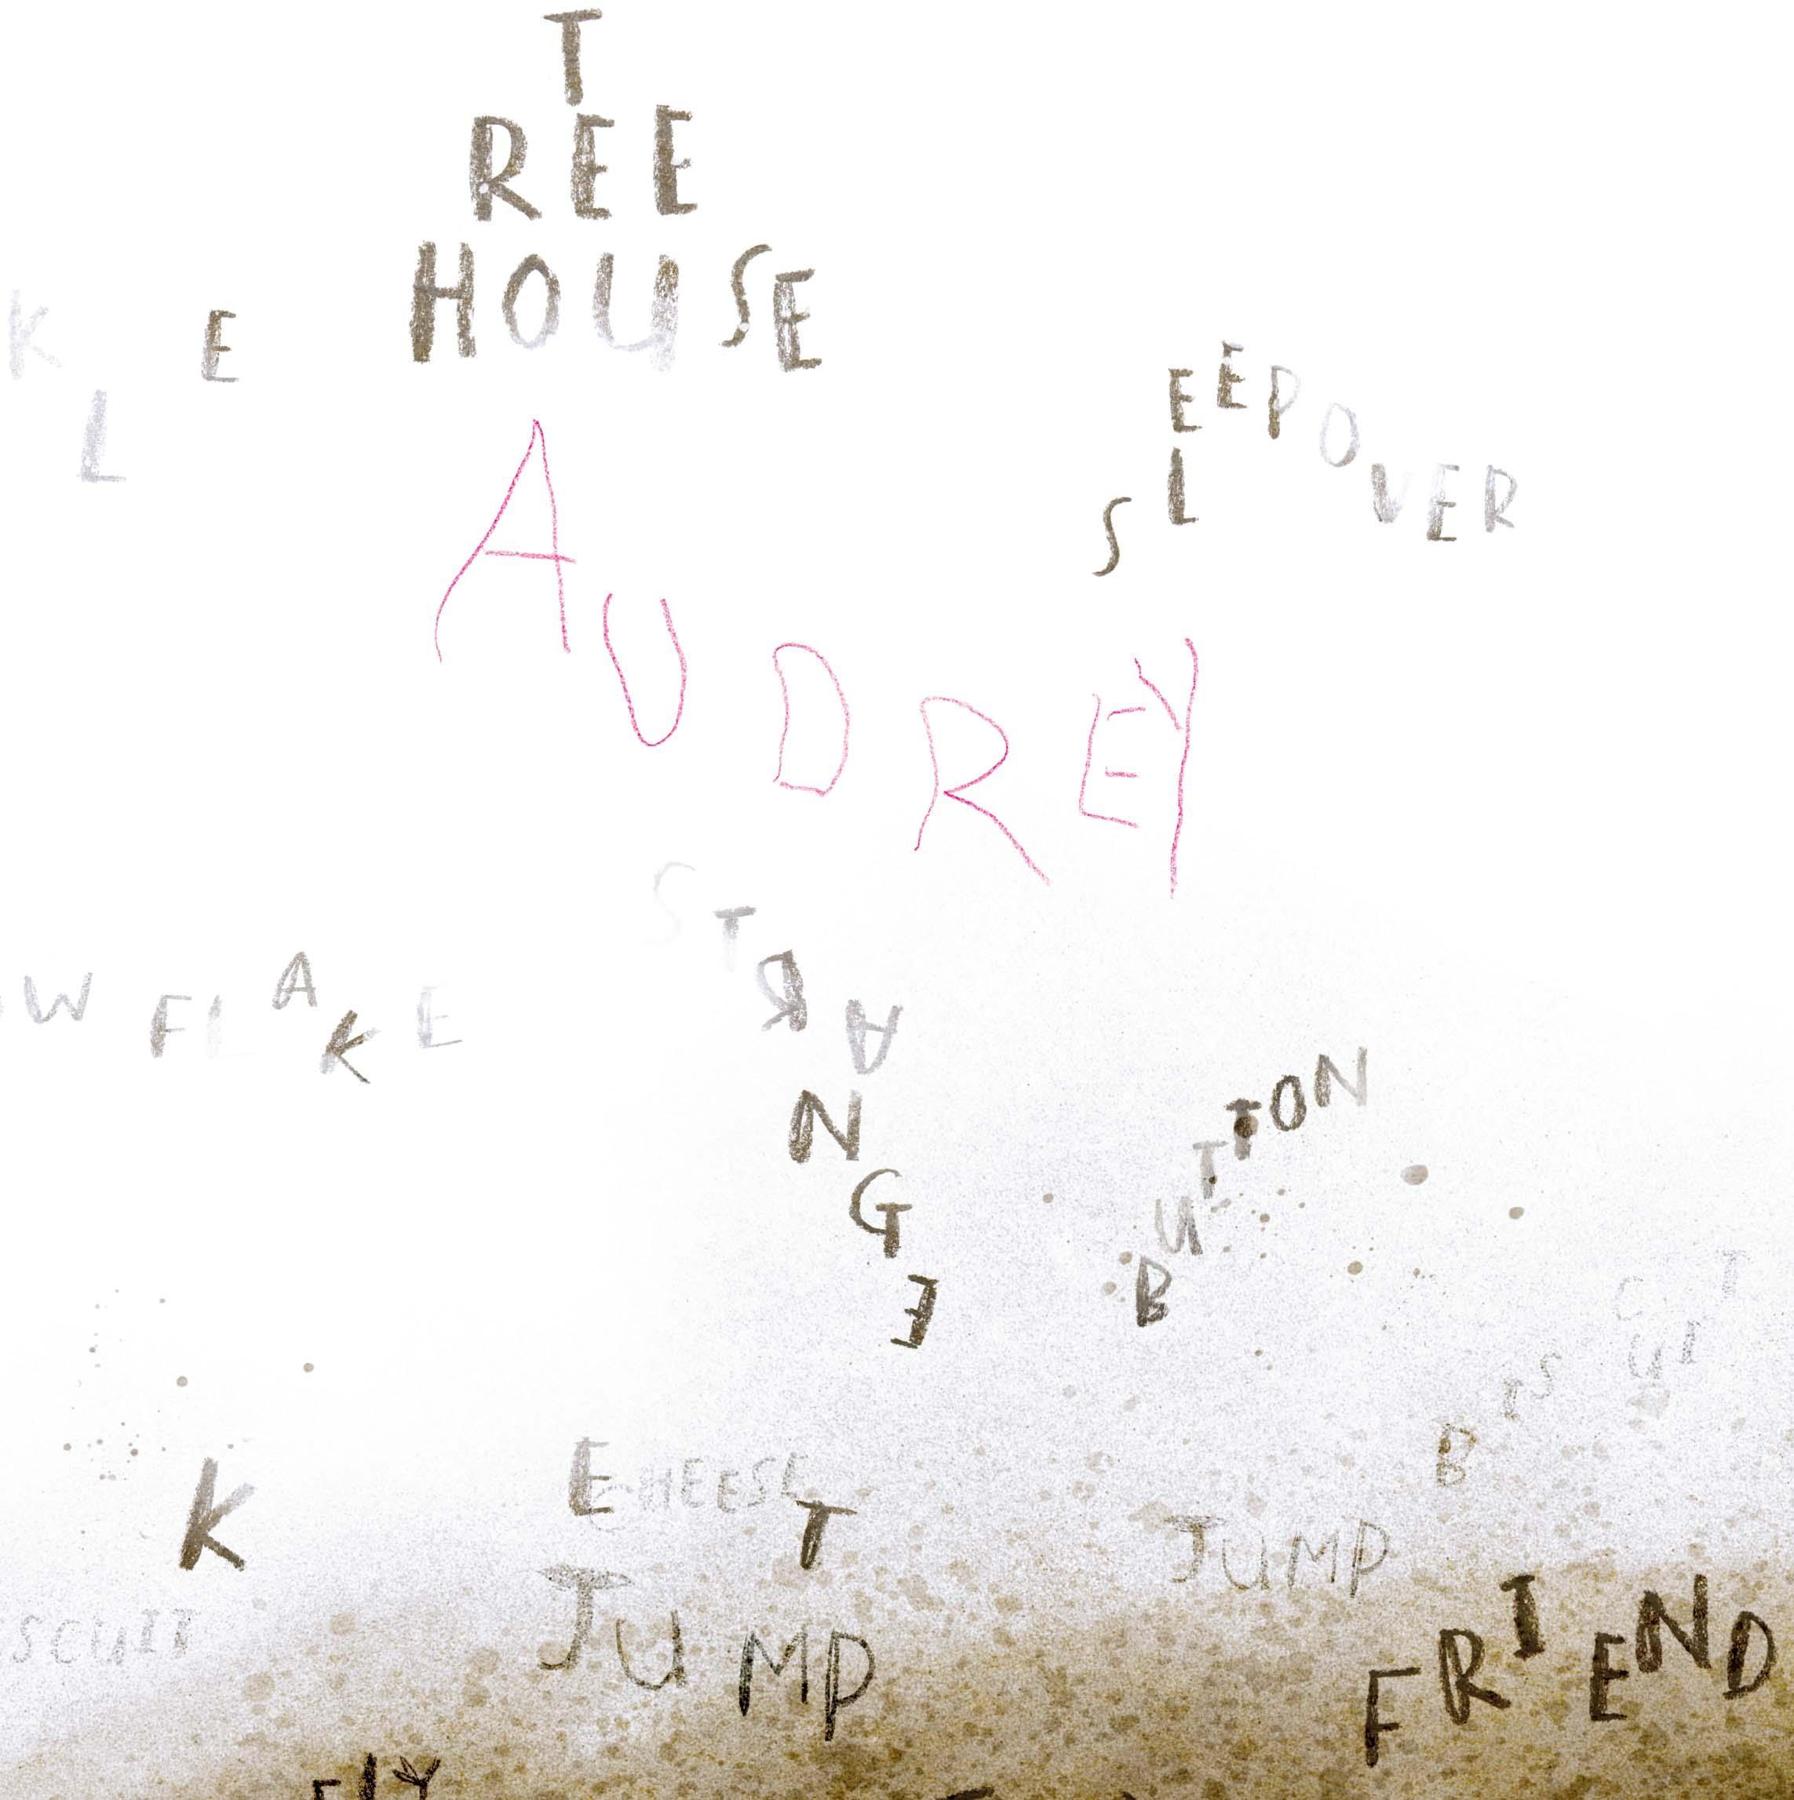 TREE
HOUSE
KLE
SLEEPOVER
AUDREY
STRANGE
OW FLAKE
BUTTON
BISCUIT
K
E
CHEESE
T
JUMP
SCUIT
JUMP
FRIEND
FLY